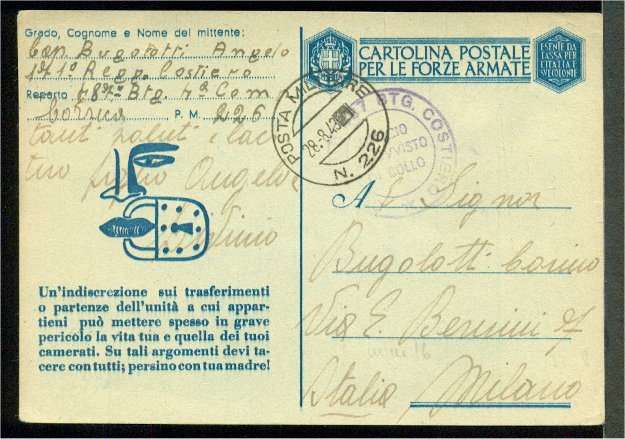 Grado, Cognome e Nome del mittente:
Cap. Bugolotti Angelo
171° Regg. Costiero
Reparto 487° Btg. 4ª Com
P. M. 226
tuo figlio Angelo
CARTOLINA POSTALE
PER LE FORZE ARMATE
ESENTE DA
TASSA PER
L'ITALIA E
SUE COLONIE
POSTA MILITARE
28-8.43
N. 226
BTG. COSTIERO
BOLLO
Al Signor
Bugolotti
Via E. Bernini
Italia Milano
Un'indiscrezione sui trasferimenti
o partenze dell'unità a cui appar-
tieni può mettere spesso in grave
pericolo la vita tua e quella dei tuoi
camerati. Su tali argomenti devi ta-
cere con tutti; persino con tua madre!